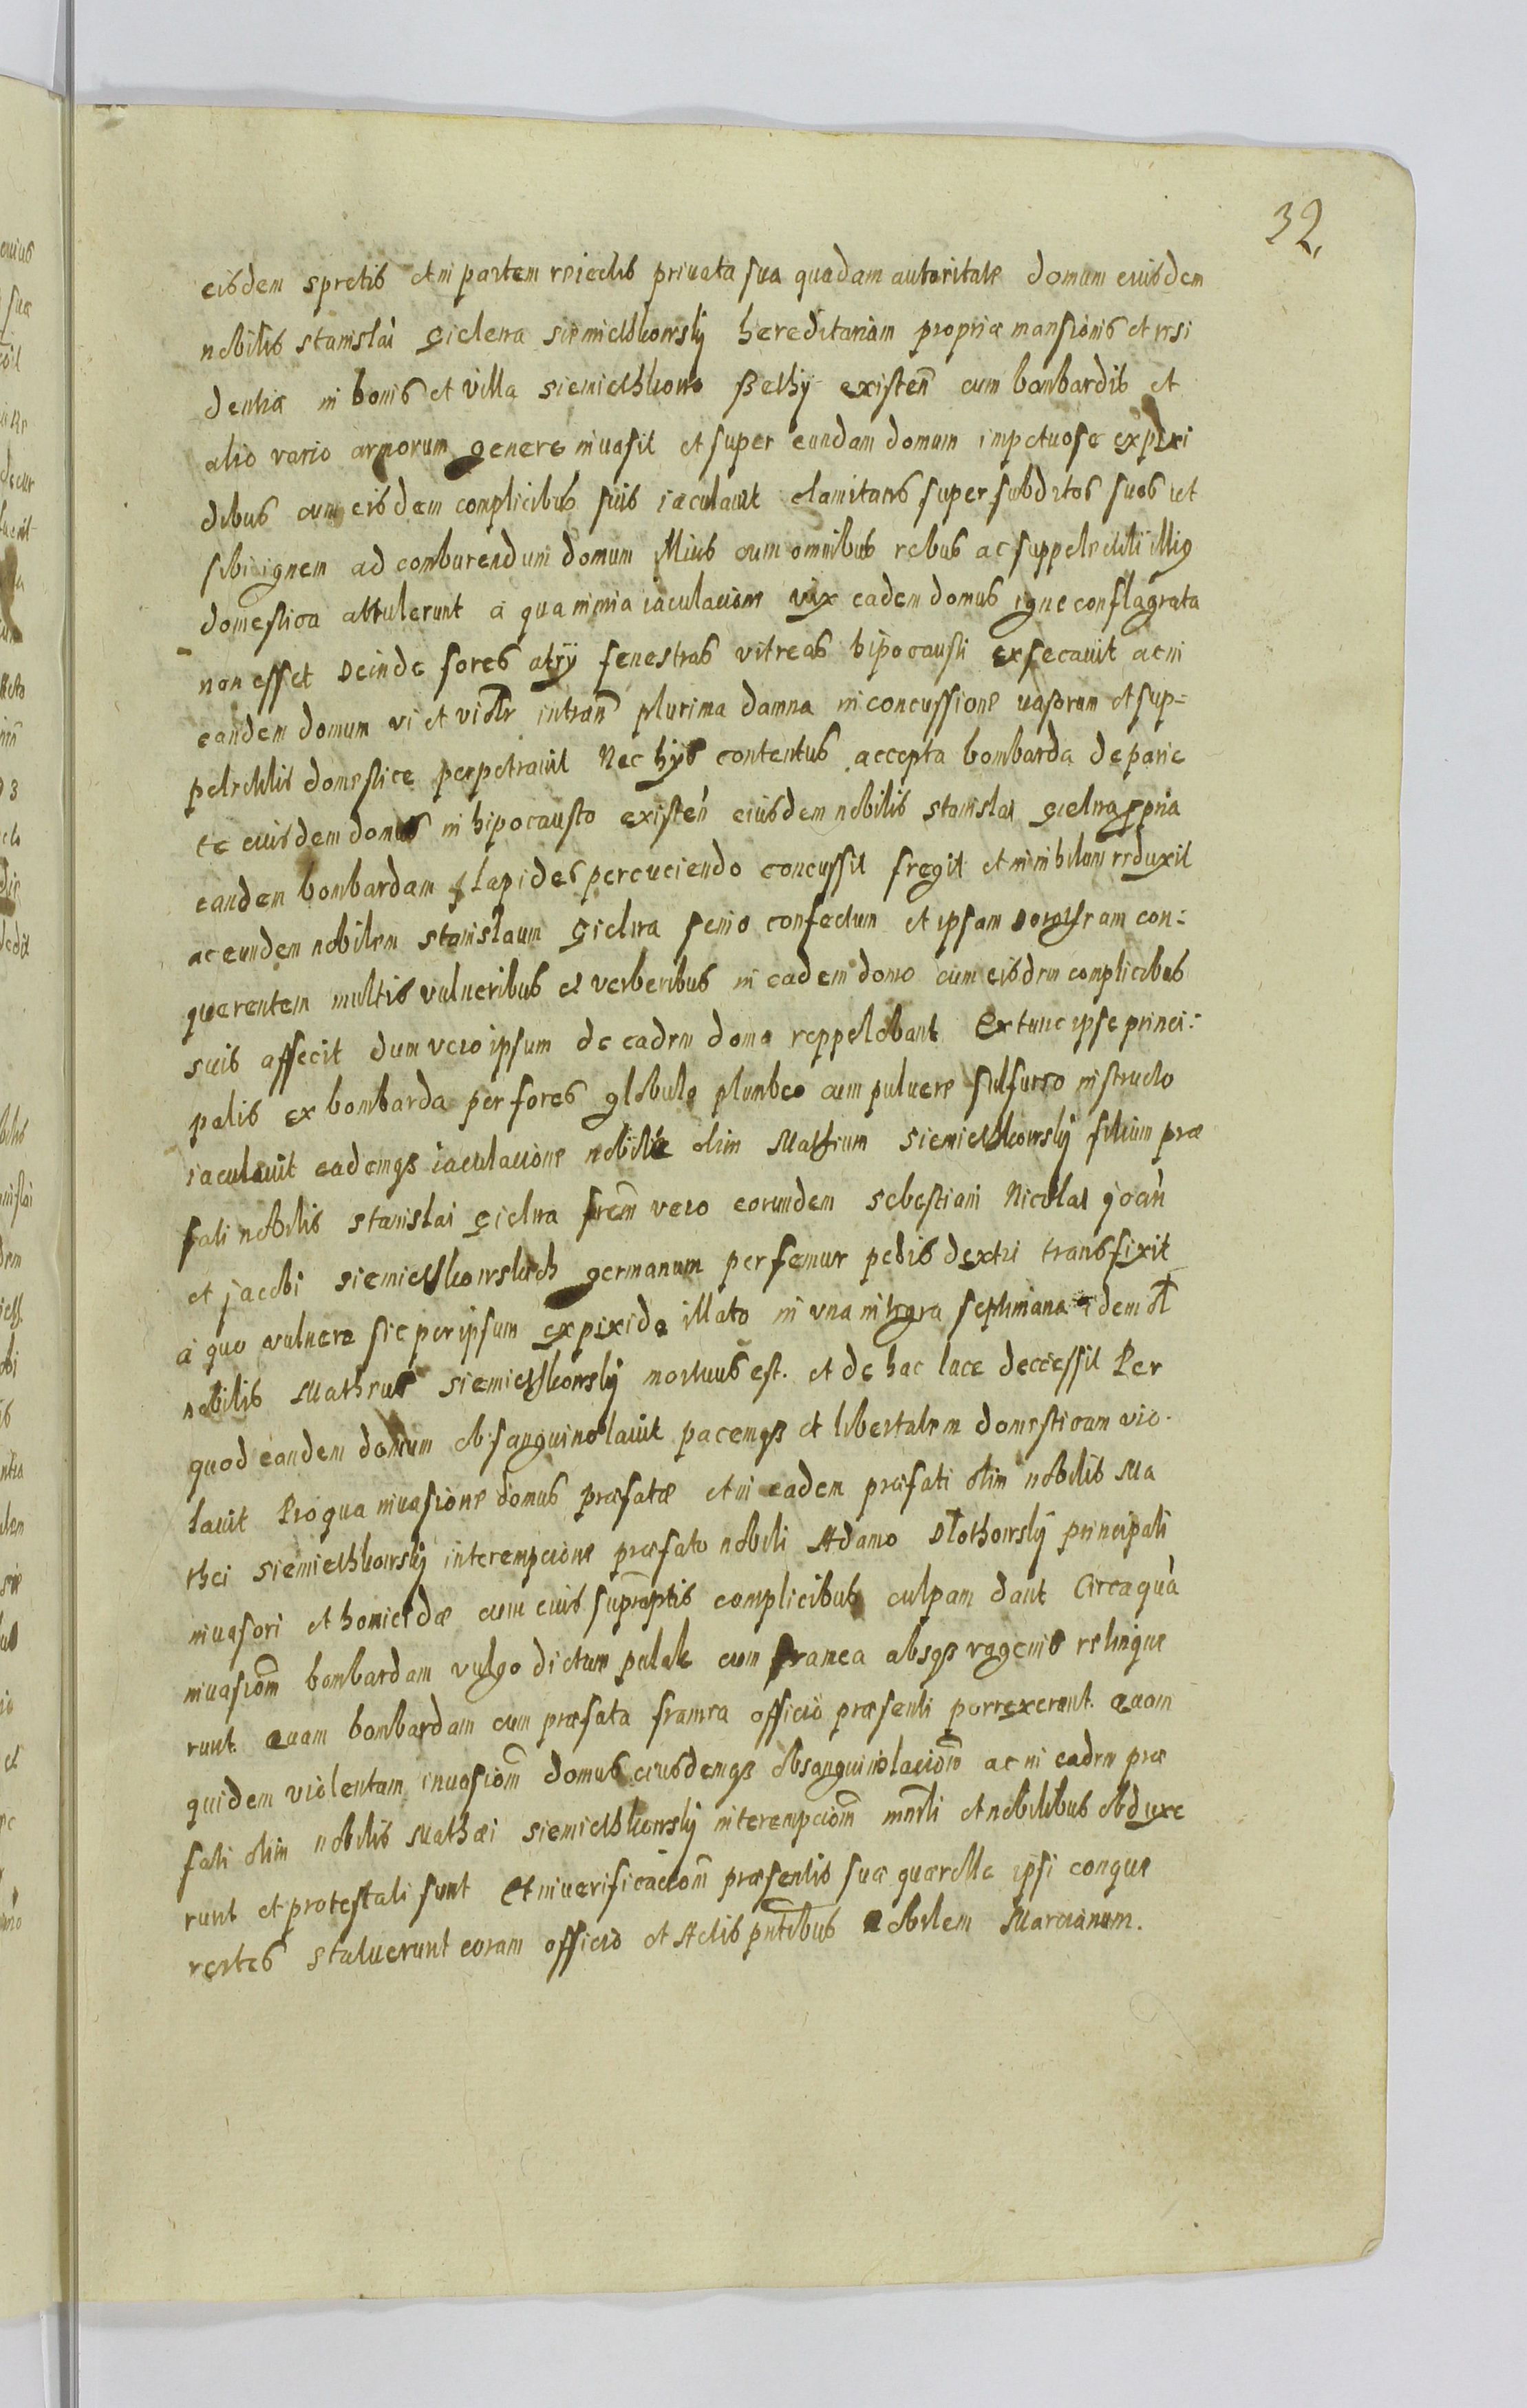 32.
eisdem spretis et in partem reiectis privata sua quadam autoritate domum eiusdem
nobilis stanislai Gielena siemiethkowsky hereditariam propriae mansionis et resi
dentiae in bonis et villa siemiethkowo Bethy existen cum bombardis et
alio vario armorum genere invasit et super eandam domum impetuose ex pixi
dibus cum eisdem complicibus suis iaculavit clamitans super subditos suos ut
sibi ignem ad comburendum domum illius cum omnibus rebus ac suppelectili illig
domestica attulerunt a qua nimia iaculacione vix eadem domus igne conflagrata
non esset Deinde fores atrij fenestras vitreas hipocausti exsecavit ac in
eandem domum vi et violtr intran plurima damna in concussione vasorum et sup=
pelectilis domestice perpetravit Nec hys contentus accepta bombarda de parie
te eiusdem domus in hipocausto existen eiusdem nobilis stanislai Gielena ppria
eandem bombardam lapides percuciendo concussit fregit et in nihilum reduxit
ac eundem nobilem stanislaum Gielena senio confectum et ipsam Dorotheam con=
querentem multis vulneribus et verberibus in eadem domo cum eisdem complicibus
suis affecit dum vero ipsum de eadem domo reppelebant Ex tunc ipse princi=
palis ex bombarda per fores globulo plumbeo cum pulvere sulfureo instructo
iaculavit eademqs iaculacione nobile olim Matheum siemiethkowsky filium prae
fati nobilis stanislai Gielena frem vero eorundem sebestiani Nicolai Joan
et Jacobi siemiethkowskich germanum per femur pedis dextri transfixit
a quo vulnere sic per ipsum ex pixide illato in una integra septimana idem ol
nobilis Matheus siemiethkowsky mortuus est. et de hac luce deccessit Per
quod eandem domum obsanguinolavit pacemqs et libertatem domesticam vio
lavit Pro qua invasione domus praefatae et in eadem praefati olim nobilis Ma
thei siemiethkowsky interempcione praefato nobili Adamo Dlothowsky principali
invasori et homicidae cum eius supraptis complicibus culpam dant Circa qua
invasiom bombardam vulgo dictum pulak cum framea absqs vagenis relinque
runt. Quam bombardam cum praefata framea officio praesenti porrexerunt. Quam
quidem violentam invasiom domus eiusdemqs obsanguinolaciom ac in eadem prae
fati olim nobilis Mathaei siemiethkowsky interempciom mnrli et nobilibus obduxe
runt et protestati sunt Et in verificaciom praesentis suae quaerellae ipsi conque
rentes statuerunt coram officio et Actis pntibus nobilem Marcianum.